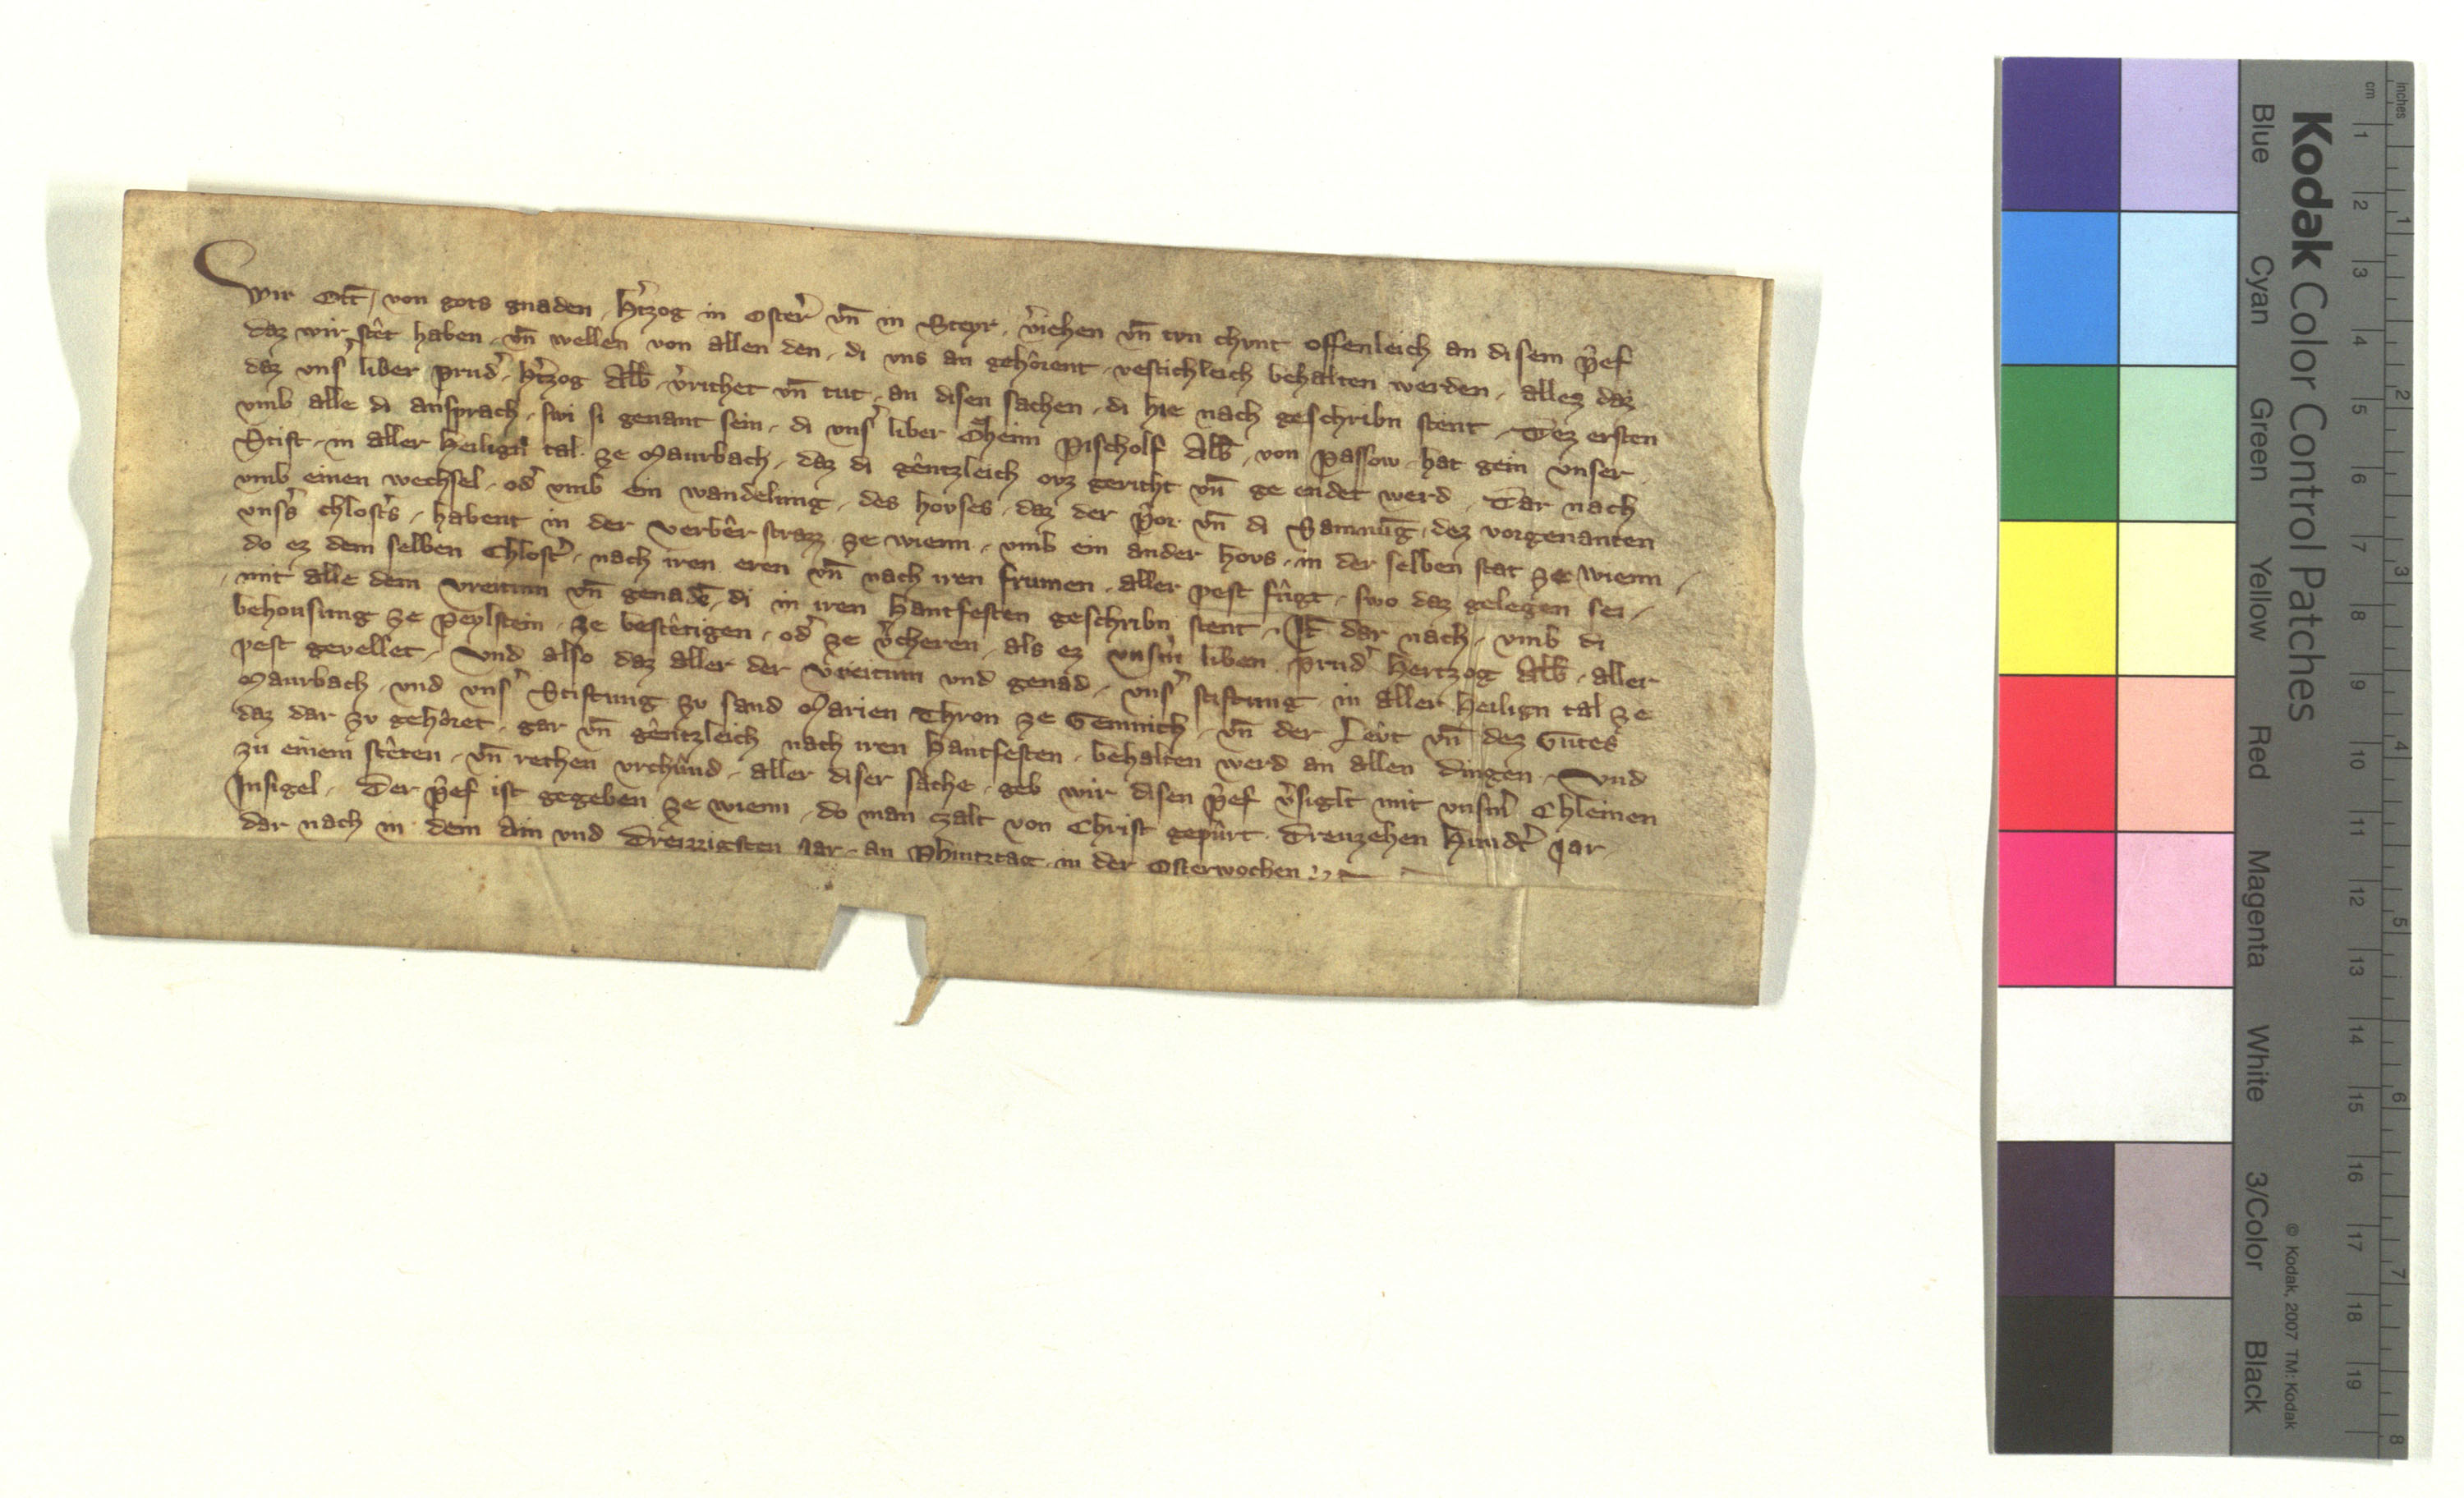 Wir Ott, von gots gnaden, Hˀtzog in Osterˀ vn̄ in Steyr, vˀiehen vn̄ tvn chvnt offenleich an disem pˀef
daz wir stêt haben, vn̄ wellen von allen den, di vns an gehôrent, vestichleich behalten werden, allez daz
daz vnsˀ liber prudˀ, Hˀtzog Alb̄, vˀrichet vn̄ tut, an disen sachen, di hie nach geschribn stent, Dez ersten
vmb alle di ansprach, swi si genant sein, di vnsˀ liber Ôheim Pischolf Alb̄, von Passow, hat gein vnser
Stift, in aller Heilign tal ze Maurbach, daz di gêntzleich ovz gericht vn̄ ge endet werd, Dar nach
vmb einen wechsel, odˀ vmb ein wandelung, des hovses, daz der pˀor vn̄ di Samnūg, dez vorgenanten
vnsˀs chlostˀs, habent in der Verbêr strazz ze wienn, vmb ein ander hovs, in der selben stat ze wienn,
do ez dem selben Chlostˀ, nach iren eren vn̄ nach iren frumen, aller pest fûgt, swo daz gelegen sei,
mit alle dem vreitum vn̄ genadē, di in iren Hantfesten geschribn stent, It̄ dar nach, vmb di
behousung ze Peylstein, ze bestêtigen, odˀ ze vˀcheren, als ez vnsm̄ liben prudˀ Hertzog Alb̄, aller
pest gevellet, Vnd also daz aller der vreitum vnd genad, vnsˀ stiftung, in aller Heilign tal ze
Maurbach, vnd vnsˀ Stiftung zv sand Marien Thron ze Gemnich, vn̄ der Levt vn̄ dez Gutes
daz dar zv gehôret, gar vn̄ gêntzleich nach iren Hantfesten, behalten werd an allen dingen, Vnd
zu einem stêten, vn̄ rechen vrchûnd, aller diser sache, geb wir disen pˀef vˀsiglt mit vnsmˀ Chleinen
Insigel, Der pˀef ist gegeben ze wienn, do man czalt von Christ gepûrt, Dreuzehen Hundˀt Jar,
dar nach in dem Ain vnd Dreizzigsten Jar, an Phintztag, in der Osterwochen
Kodak Color Control Patches
Blue Cyan Green Yellow Red Magenta White 3/Color Black
© Kodak, 2007 TM: Kodak
cm 1 2 3 4 5 6 7 8 9 10 11 12 13 14 15 16 17 18 19
inches 1 2 3 4 5 6 7 8